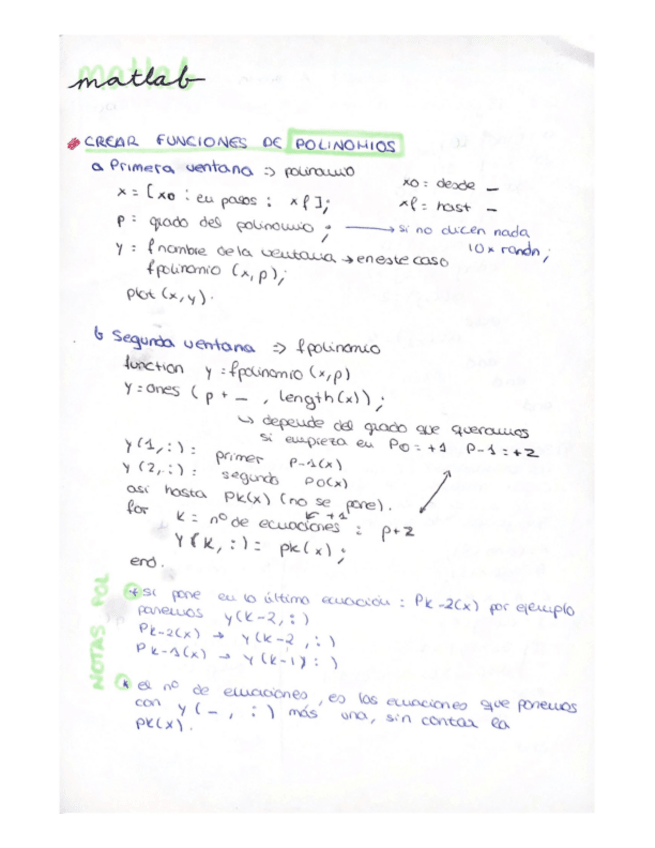 matlab
CREAR FUNCIONES DE POLINOMIOS
a Primera ventana => polinomio
x = [xo : en pasos : xf];
xo: desde _
xf = hast _
p: grado del polinomio ; → si no dicen nada
10 x randn;
y = fnombre de la ventana → en este caso
fpolinomio (x,p);
plot (x,y).
b Segunda ventana => fpolinomio
function y = fpolinomio (x,p)
y = ones (p + _ , length(x));
↳ depende del grado que queramos
si empieza en P0 = +1 P-1 = +2
y(1,:) = primer P-1(x)
y(2,:) = segundo P0(x)
así hasta Pk(x) (no se pone).
for k = nº de ecuaciones : p+2
k+1
y(k, :) = pk(x);
end.
NOTAS POL
* si pone en la última ecuación : Pk-2(x) por ejemplo
ponemos y(k-2, :)
Pk-2(x) → y(k-2, :)
Pk-1(x) → y(k-1, :)
* el nº de ecuaciones, es las ecuaciones que ponemos
con y(_, :) más una, sin contar la
pk(x).